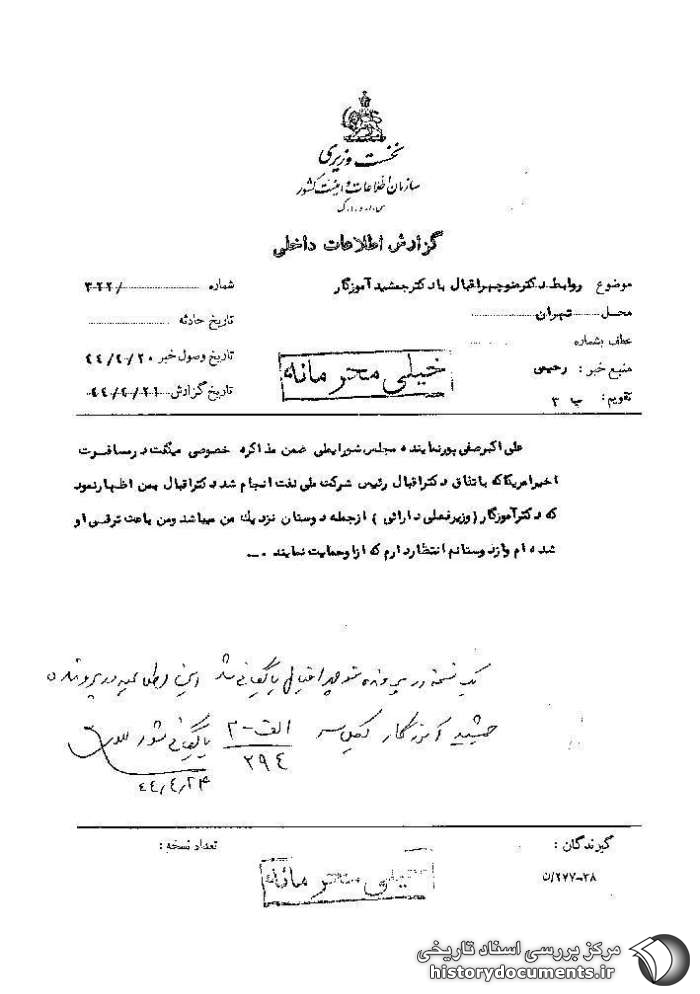 نخست وزیری
سازمان اطلاعات و امنیت کشور
س.ا.و.ا.ک
گزارش اطلاعات داخلی
موضوع روابط دکتر منوچهر اقبال با دکتر جمشید آموزگار
شماره /۳۲۲
محل تهران
تاریخ حادثه
عطف بشماره
تاریخ وصول خبر ۴۴/۴/۲۰
منبع خبر : رحیمی
خیلی محرمانه
تاریخ گزارش ۴۴/۴/۲۱
تقویم: ب ۳
علی اکبر صفی پور نماینده مجلس شورایملی ضمن مذاکره خصوصی میگفت در مسافرت
اخیر امریکا که باتفاق دکتر اقبال رئیس شرکت ملی نفت انجام شد دکتر اقبال بمن اظهار نمود
که دکتر آموزگار ( وزیر فعلی دارائی ) از جمله دوستان نزدیک من میباشد ومن باعث ترقی او
شده ام واز دوستانم انتظار دارم که از او حمایت نمایند .
یک نسخه در پرونده منوچهر اقبال بایگانی شد این اطلاعیه در پرونده
جمشید آموزگار بکلاسه الف-۲ / ۲۹۴ بایگانی شود
۴۴/۴/۲۴
گیرندگان :
تعداد نسخه :
۲۷۷-۳۸/ن
خیلی محرمانه
مرکز بررسی اسناد تاریخی
historydocuments.ir